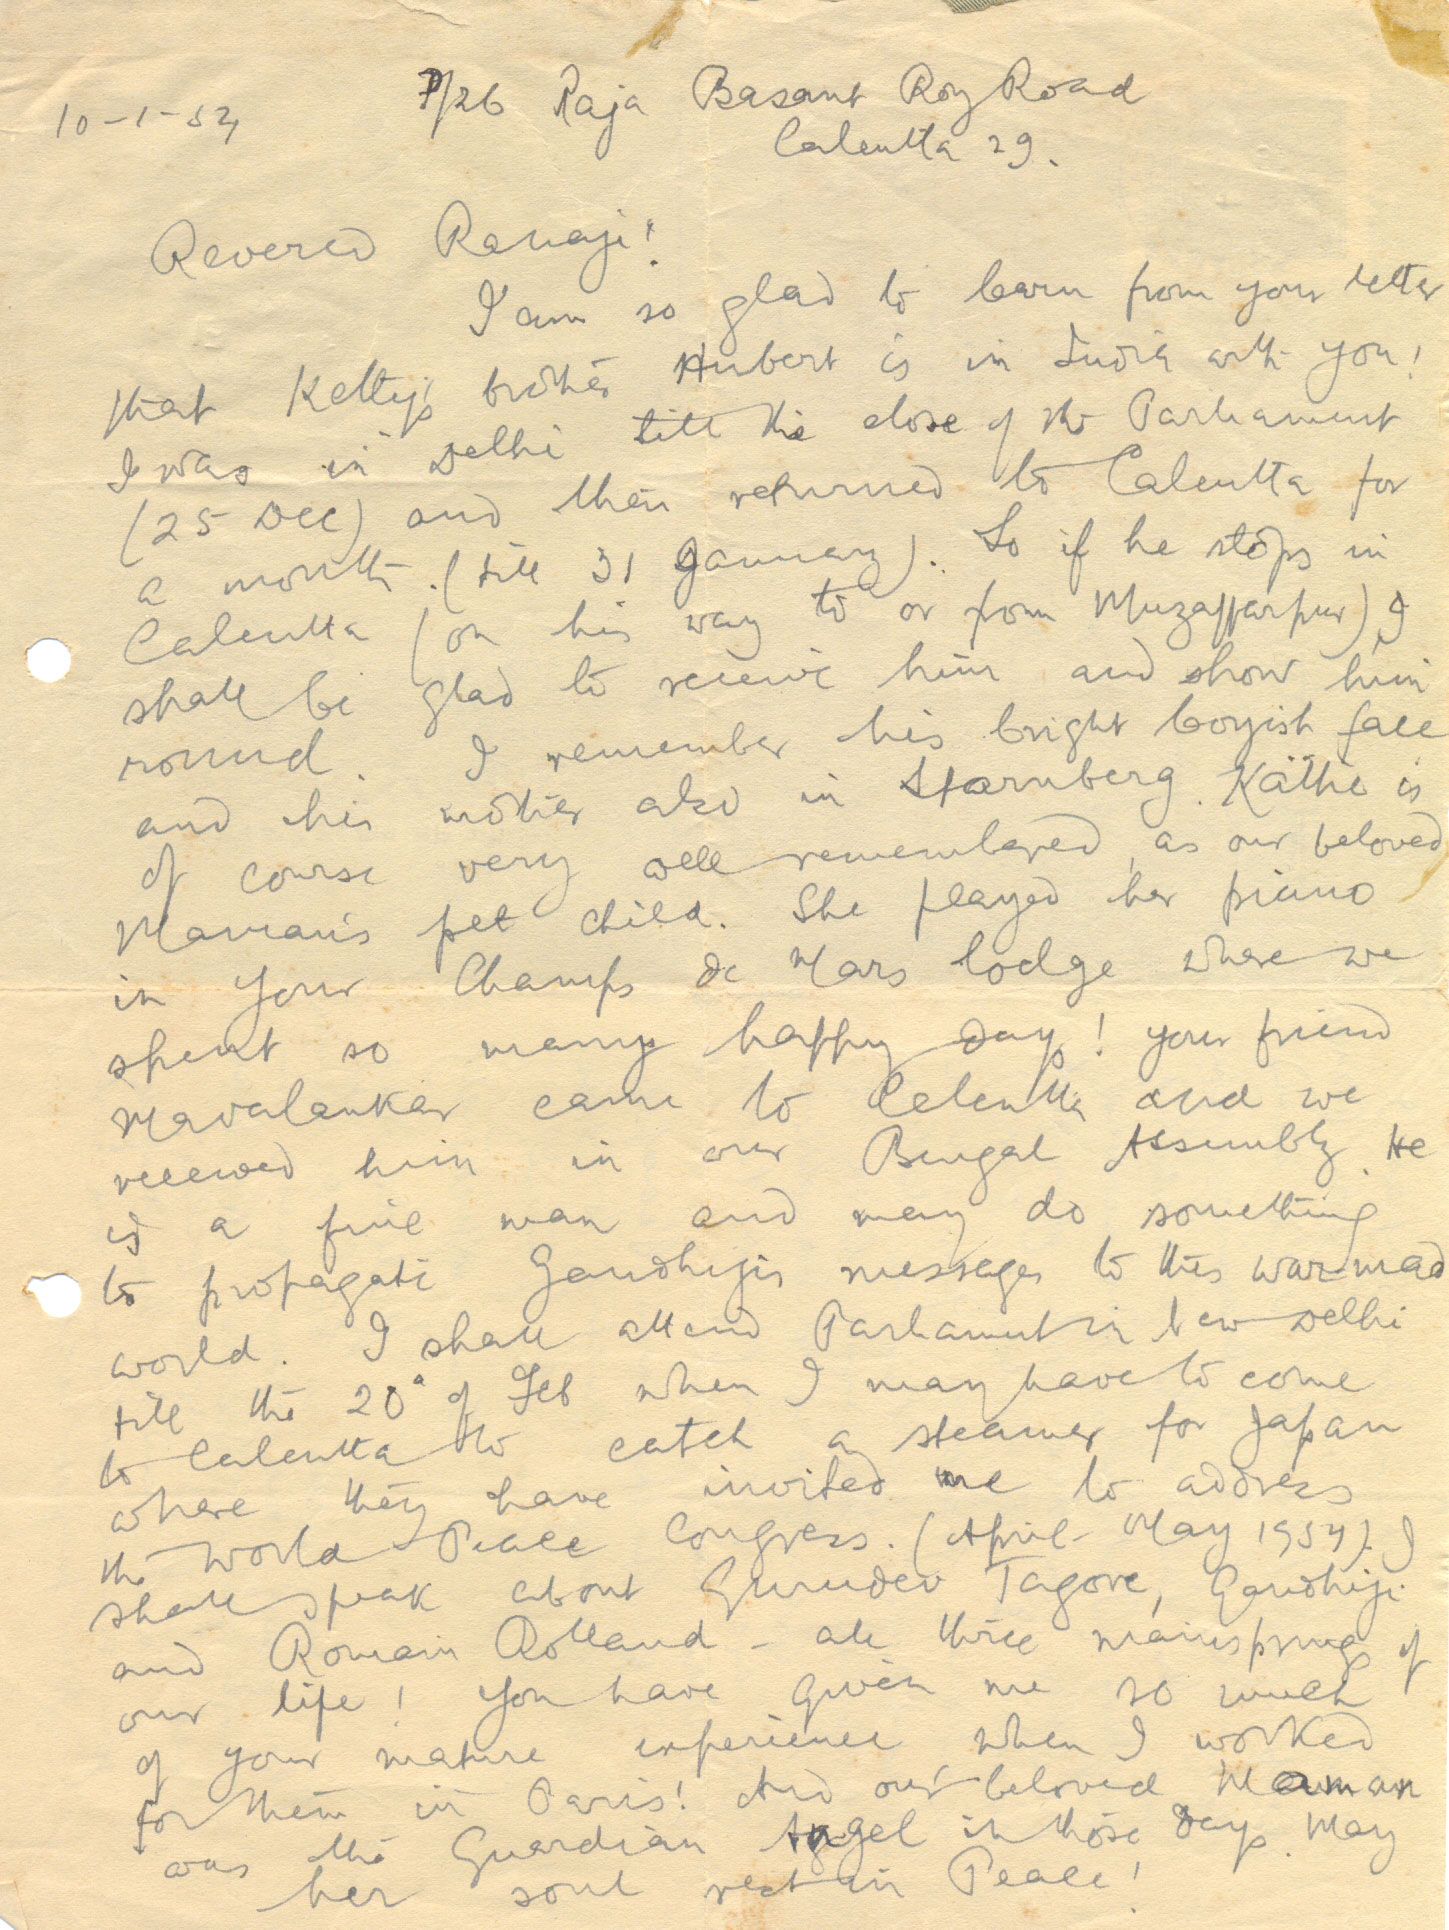 P/26 Raja Basant Roy Road
10-1-54
Calcutta 29.
Revered Ranaji!
I am so glad to learn from your letter
that Kettyj's brother Hubert is in India with you!
I was in Delhi till the close of the Parliament
(25 Dec) and then returned to Calcutta for
a month. (till 31 January). So if he stops in
Calcutta (on his way to or from Muzaffarpur) I
shall be glad to receive him and show him
round. I remember his bright boyish face
and his mother also in Starnberg. Käthe is
of course very well remembered, as our beloved
Maman's pet child. She played her piano
in your Champs de Mars lodge where we
spent so many happy days! Your friend
Mavalankar came to Calcutta and we
received him in our Bengal Assembly. He
is a fine man and may do something
to propagate Gandhiji's messages to this war-mad
world. I shall attend Parliament in New Delhi
till the 20 of Feb when I may have to come
to Calcutta to catch a steamer for Japan
where they have invited me to address
the World Peace Congress. (April-May 1954). I
shall speak about Gurudev Tagore, Gandhiji
and Romain Rolland - all three mainsprings of
our life! You have given me so much
of your mature experience when I worked
for them in Paris! And our beloved Maman
was the Guardian Angel in those days. May
her soul rest in Peace!